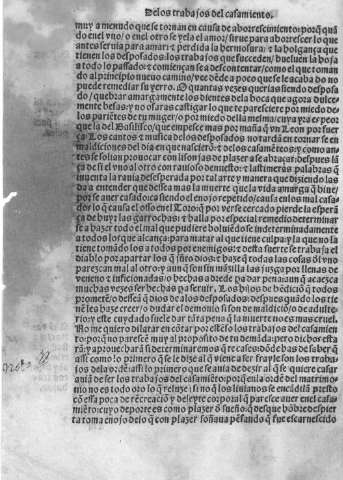 De los trabajos del casamiento.
muy a menudo que se tornan en causa de aborrescimiento: porq̃ quã
do en el vno / o en el otro se yela el amor / sirue para aborrescer lo que
antes seruia para amar: τ perdida la hermosura / τ la holgança que
tienen los desposados: los trabajos que succeden / bueluen la hoja
a todo lo passado: τ comiençan se a descontentar / como el que toman
do al principio nueuo camino / vee dõde a poco que se acaba do no
puede remediar su yerro. O quantas vezes querias siendo desposa
do / quebrar amargamente los dientes dela boca que agora dulce
mente besas: y no osaras castigar lo que te paresciere por miedo de
los pariẽtes de tu muger / o por miedo della mesma / cuya yra es peor
que la del Basilisco / que empesce mas por maña q̃ vn Leon por fuer
ça. Los cantos τ musica delos desposados / no tardã en tornar se en
maldiciones del dia en que nasciẽrõ: τ delos casamẽtos: y como an
tes se solian prouocar con lisonjas de plazer a se abraçar: despues lã
ça de si el vno al otro con rauioso denuesto: τ lastimeras palabras q̃
inuenta la rauia desesperada por tal arte y manera que diziendo las
da a entender que dessea mas la muerte que la vida amarga q̃ biue /
por se auer casado: ca siendo el enojo repetido / causa en los mal casa
dos lo q̃ causa el osso en el Toro: q̃ por verse cercado pierde la esperã
ça de huyr las garrochas: τ halla por especial remedio determinar
se a hazer todo el mal que pudiere boluiẽdo se indeterminadamente
a todos los que alcança para matar al que tiene culpa: y la que no la
tiene tomãdo los a todos por enemigos: τ desta suerte se trabaja el
diablo por apartar los q̃ jũto dios: τ haze q̃ todas las cosas dl vno
parezcan mal al otro: y aunq̃ son sin mãzilla las juzga por llenas de
veneno τ inficionadas / o hechas a dñde para dar pena: aunq̃ acaezca
muchas vezes ser hechas pa seruir. Los hijos de bẽdiciõ q̃ todos
prometẽ / o dessea q̃ dios de a los desposados: despues quãdo los tie
nẽ lea haze creer / o dudar el demonio si son de maldiciõ / o de adulte
rio: y este cuydado suele dar tãta pena q̃ la muerte no es mas cruel.
No me quiero dilatar en cõtar por estẽso los trabajos del casamien
to: porq̃ no parescẽ muy al proposito de tu demãda: pero dichos esta
rã: y aprouecharã si determinaremos que te cases: dõde has de saber q̃
assi como lo primero q̃ se le dize al q̃ viene a ser frayle son los traba
jos dela ordẽ: assi lo primero que se auia de dezir al q̃ se quiere casar
auiã de ser los trabajos del casamiẽto: porq̃ en la ordẽ del matrimo
nio no es todo oro lo q̃ reluze: si no q̃ los liuianos se encãdilã presto
cõ essa poca de recreaciõ y deleyte corporal q̃ paresce auer en el casa
miẽto: cuyo deporte es como plazer d̃ sueño: q̃ desque hõbre despier
ta toma enojo delo q̃ con plazer soñaua pẽsando q̃ fue escarnescido